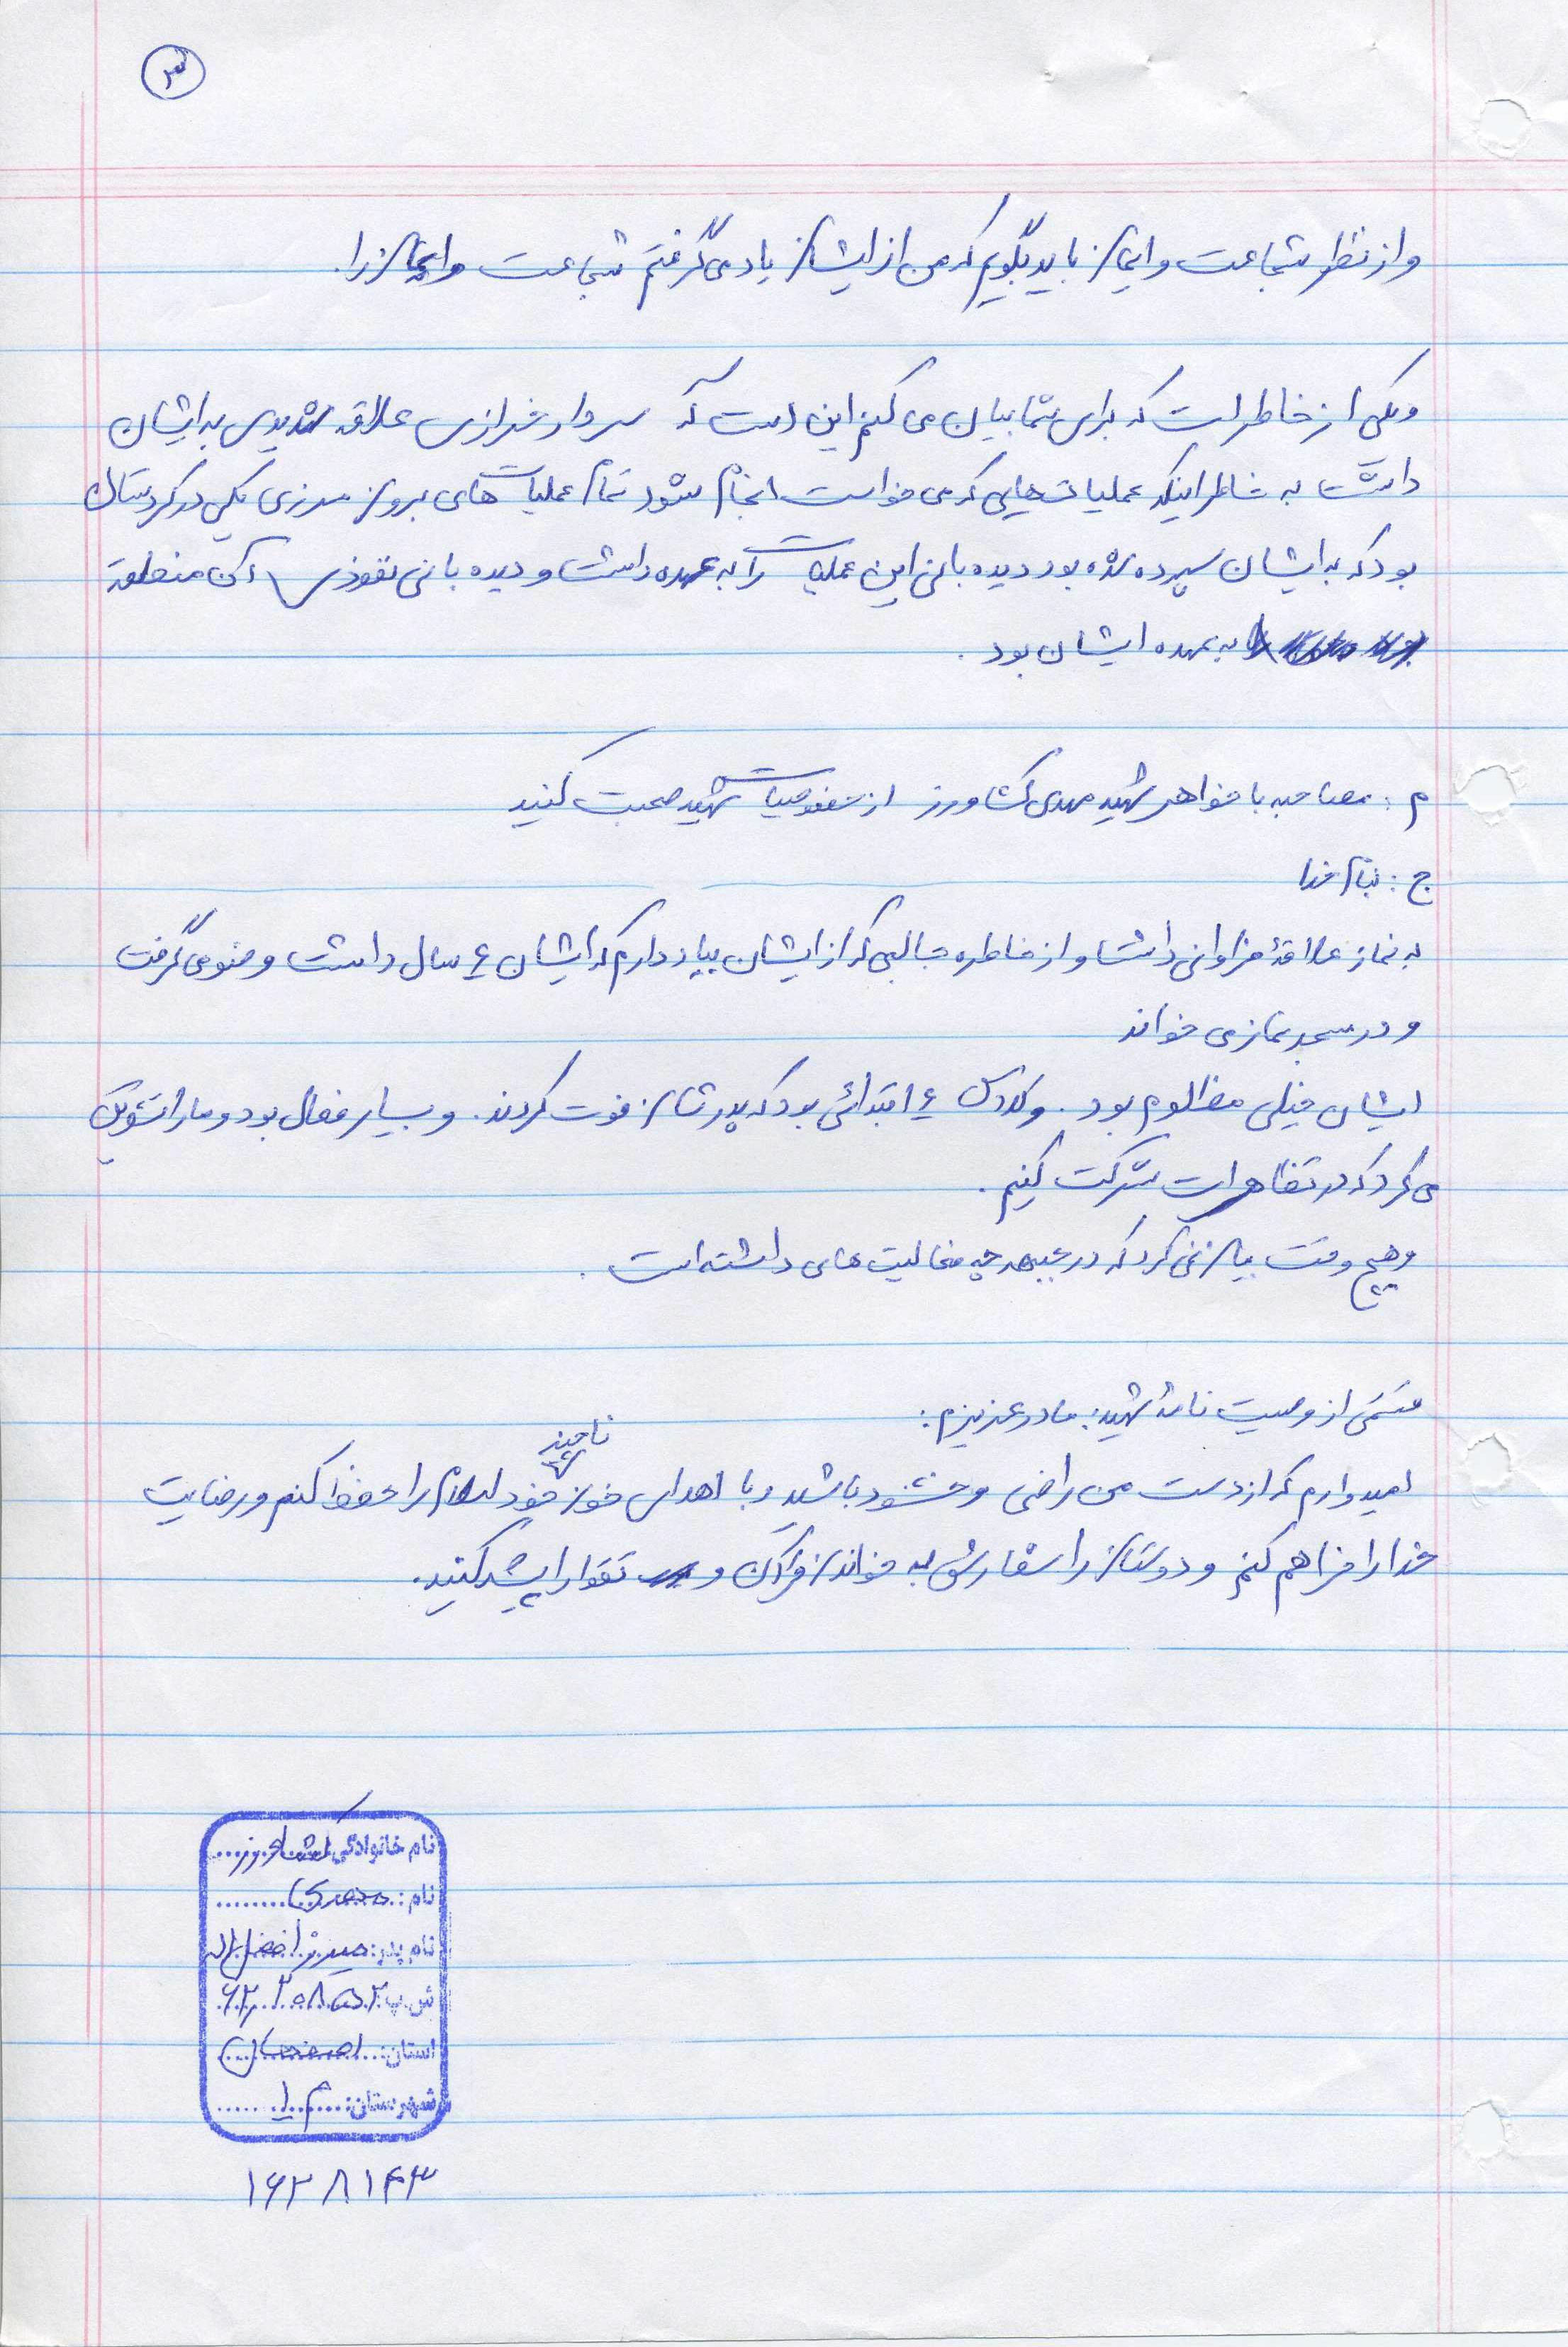 ۳
و از نظر شجاعت و ایمان باید بگویم که من از ایشان یاد می گرفتم شجاعت و ایمان را.
و یکی از خاطرات که برای شما بیان می کنم این است که سردار خرازی علاقه شدیدی به ایشان
داشت به خاطر اینکه عملیات هایی که می خواست انجام شود تمام عملیات های برون مرزی یکی در کردستان
بود که به ایشان سپرده شده بود دیده بانی این عملیات را به عهده داشت و دیده بانی نفوذی آن منطقه
به عهده ایشان بود.
م: مصاحبه با خواهر شهید مهدی کشاورز از خصوصیات شهید صحبت کنید
ج: بنام خدا
به نماز علاقۀ فراوانی داشت و از خاطره جالبی که از ایشان بیاد دارم که ایشان ۶ سال داشت وضو می گرفت
و در مسجد نماز می خواند
ایشان خیلی مظلوم بود. و کلاس ۴ ابتدائی بود که پدرشان فوت کردند. و بسیار فعال بود و ما را تشویق
می کرد که در تظاهرات شرکت کنیم.
و هیچ وقت بیان نمی کرد که در جبهه چه فعالیت های داشته است.
قسمتی از وصیت نامۀ شهید: مادر عزیزم:
امیدوارم که از دست من راضی و خشنود باشید و با اهدای خون ناچیز خود اسلام را حفظ کنم و رضایت
خدا را فراهم کنم و دوستان را سفارش به خواندن قرآن و تقوا را پیشه کنید.
نام خانوادگی: کشاورز
نام: مهدی
نام پدر: میرزا فضل اله
ش.پ: ۶۲۰۲۰۸۵۲
استان: اصفهان
شهرستان: م ۱
۱۶۲۸۱۴۳